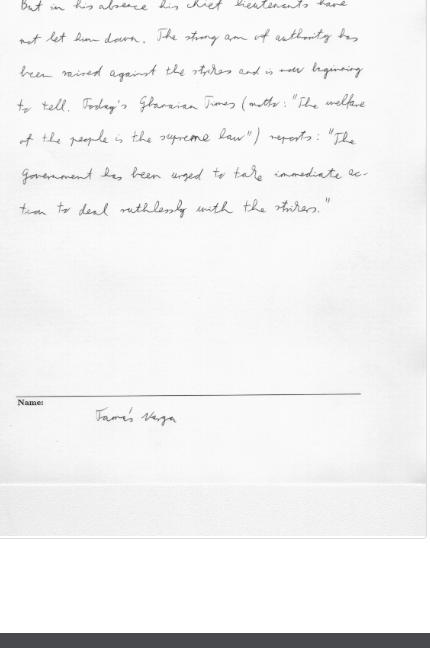 But in his absence his chief lieutenants have
not let him down. The strong arm of authority has
been raised against the strikes and is now beginning
to tell. Today's Ghanaian Times (motto: "The welfare
of the people is the supreme law") reports: "The
Government has been urged to take immediate ac-
tion to deal ruthlessly with the strikers."
Name:
Tamás Varga